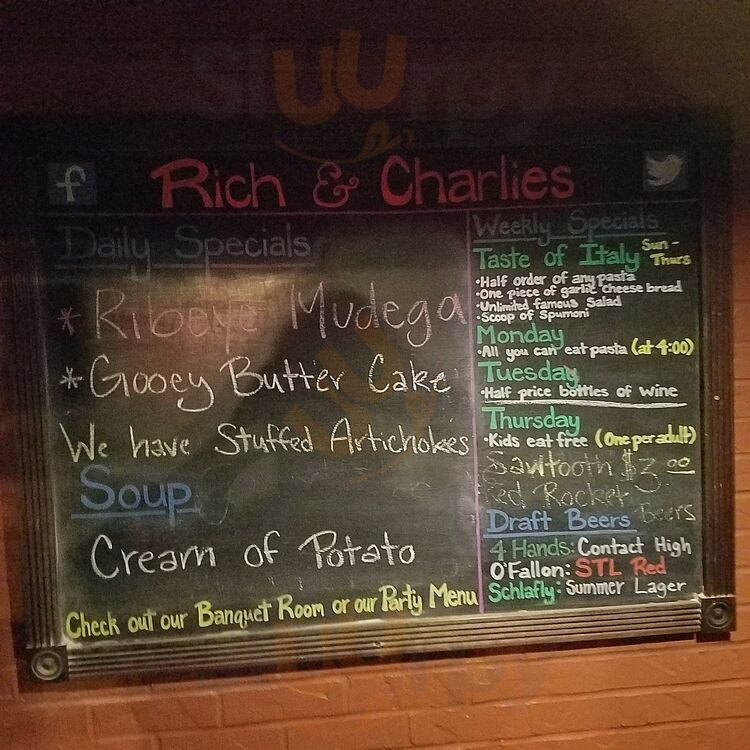 Sluurpy
f
Rich & Charlies
Daily Specials
* Ribeye Mudega
* Gooey Butter Cake
We have Stuffed Artichokes
Soup
Cream of Potato
Check out our Banquet Room or our Party Menu
Weekly Specials
Taste of Italy Sun - Thurs
• Half order of any pasta
• One piece of garlic cheese bread
• Unlimited famous Salad
• Scoop of Spumoni
Monday
• All you can eat pasta (at 4:00)
Tuesday
• Half price bottles of wine
Thursday
• Kids eat free (One per adult)
Sawtooth $3.00
Red Rocket
Draft Beers Beers
4 Hands: Contact High
O'Fallon: STL Red
Schlafly: Summer Lager